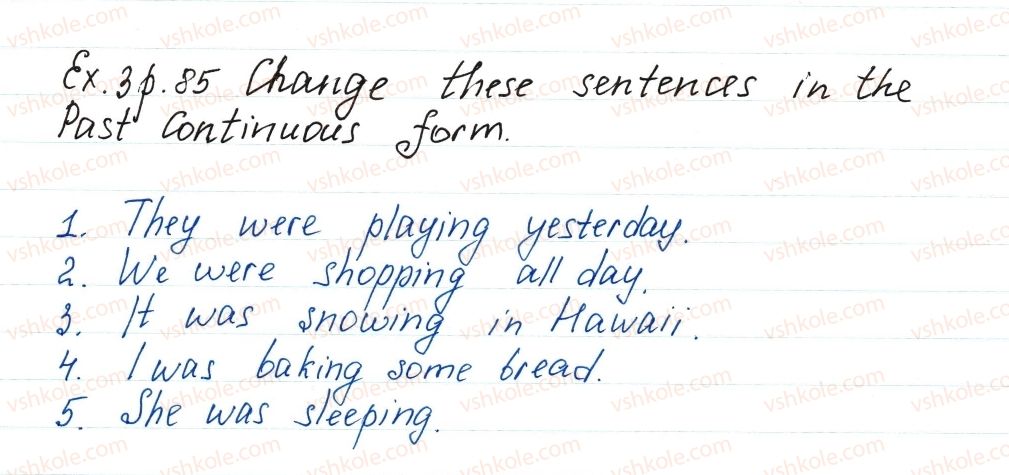 Ex. 3 p. 85 Change these sentences in the
Past Continuous form.
1. They were playing yesterday.
2. We were shopping all day.
3. It was snowing in Hawaii.
4. I was baking some bread.
5. She was sleeping.
vshkole.com